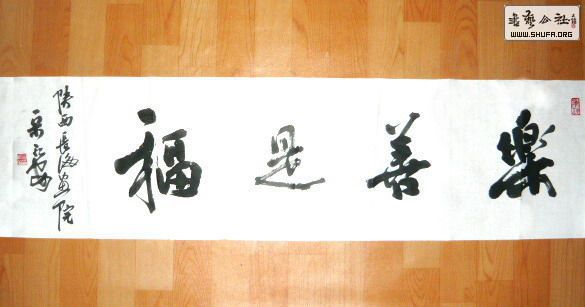 樂善是福
陕西長海畫院
書藝公社
WWW.SHUFA.ORG